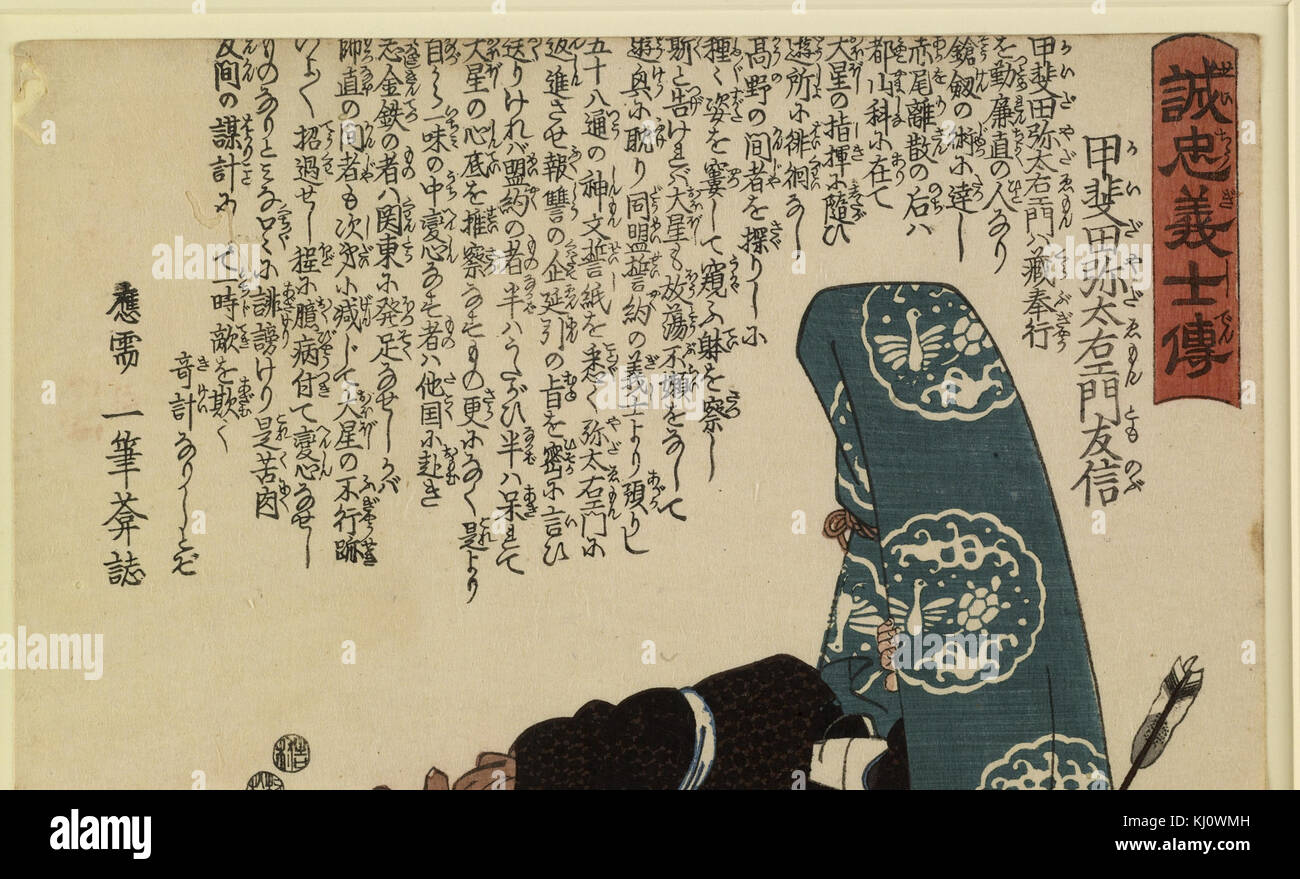 誠忠義士傳
甲斐田弥太右エ門友信
甲斐田弥太右エ門ハ藏奉行
を勤め廉直の人なり
鎗劔の術に達し
赤尾離散の后ハ
都山科に在て
大星の指揮に隨ひ
遊所に徘徊なし
高野の間者を探りしに
種々姿を窶して窺ふ躰を察し
斯と告けれバ大星も放蕩不頼をなして
遊興に耽り同盟誓約の義士より預りし
五十八通の神文誓紙を悉く弥太右エ門に
返進させ報讐の企延引の旨を密に言ひ
送りけれバ盟約の者半ハうたがひ半ハ呆れて
大星の心底を推察なすもの更になく是より
自から一味の中変心なす者ハ他国に赴き
志金鉄の者ハ関東に発足なせしかバ
師直の間者も次第に減じて大星の不行跡
いよく招過せし程に臆病付て変心なせし
ものなりとミな口々に誹謗けり是苦肉
反间の謀計にして一時敵を欺く
奇計なりしとぞ
應需 一筆葊誌
alamy
KJ0WMH
www.alamy.com